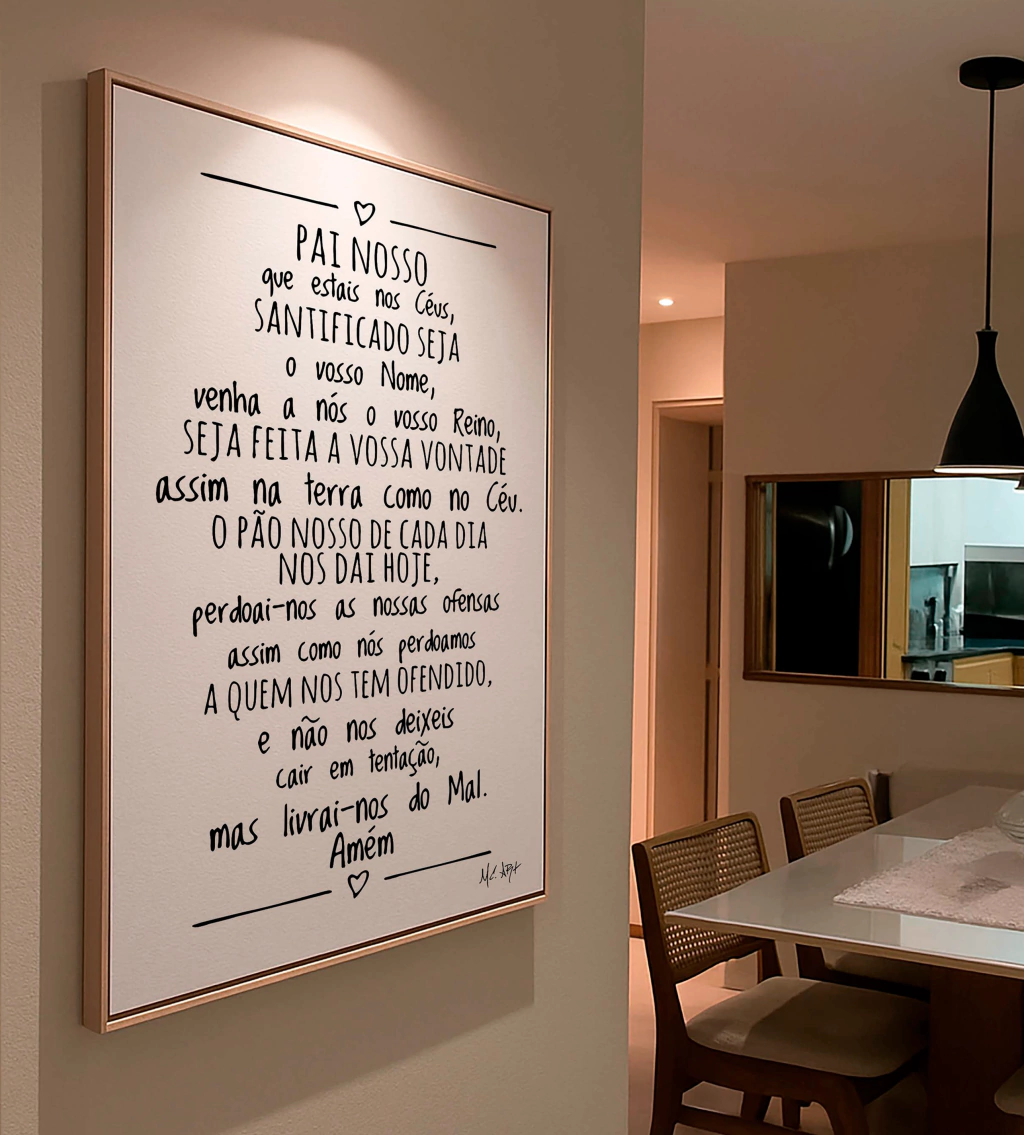 PAI NOSSO
que estais nos Céus,
SANTIFICADO SEJA
o vosso Nome,
venha a nós o vosso Reino,
SEJA FEITA A VOSSA VONTADE
assim na terra como no Céu.
O PÃO NOSSO DE CADA DIA
NOS DAI HOJE,
perdoai-nos as nossas ofensas
assim como nós perdoamos
A QUEM NOS TEM OFENDIDO,
e não nos deixeis
cair em tentação,
mas livrai-nos do Mal.
Amém